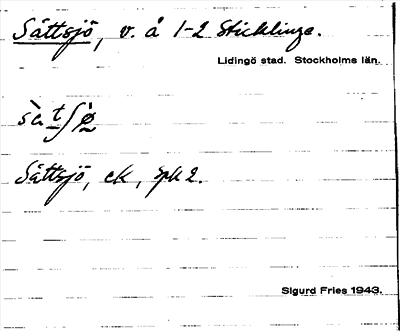 Såttsjö, v. å 1-2 Sticklinge.
Lidingö stad. Stockholms län.
Såttsjö, ek, spk 2.
Sigurd Fries 1943.